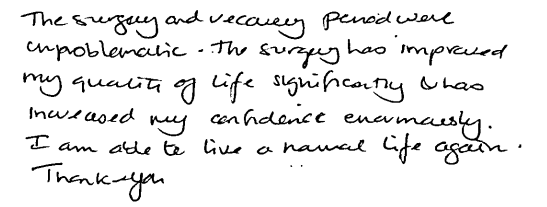 The surgery and recovery period were
unproblematic. The surgery has improved
my quality of life significantly & has
increased my confidence enormously.
I am able to live a normal life again.
Thank-you